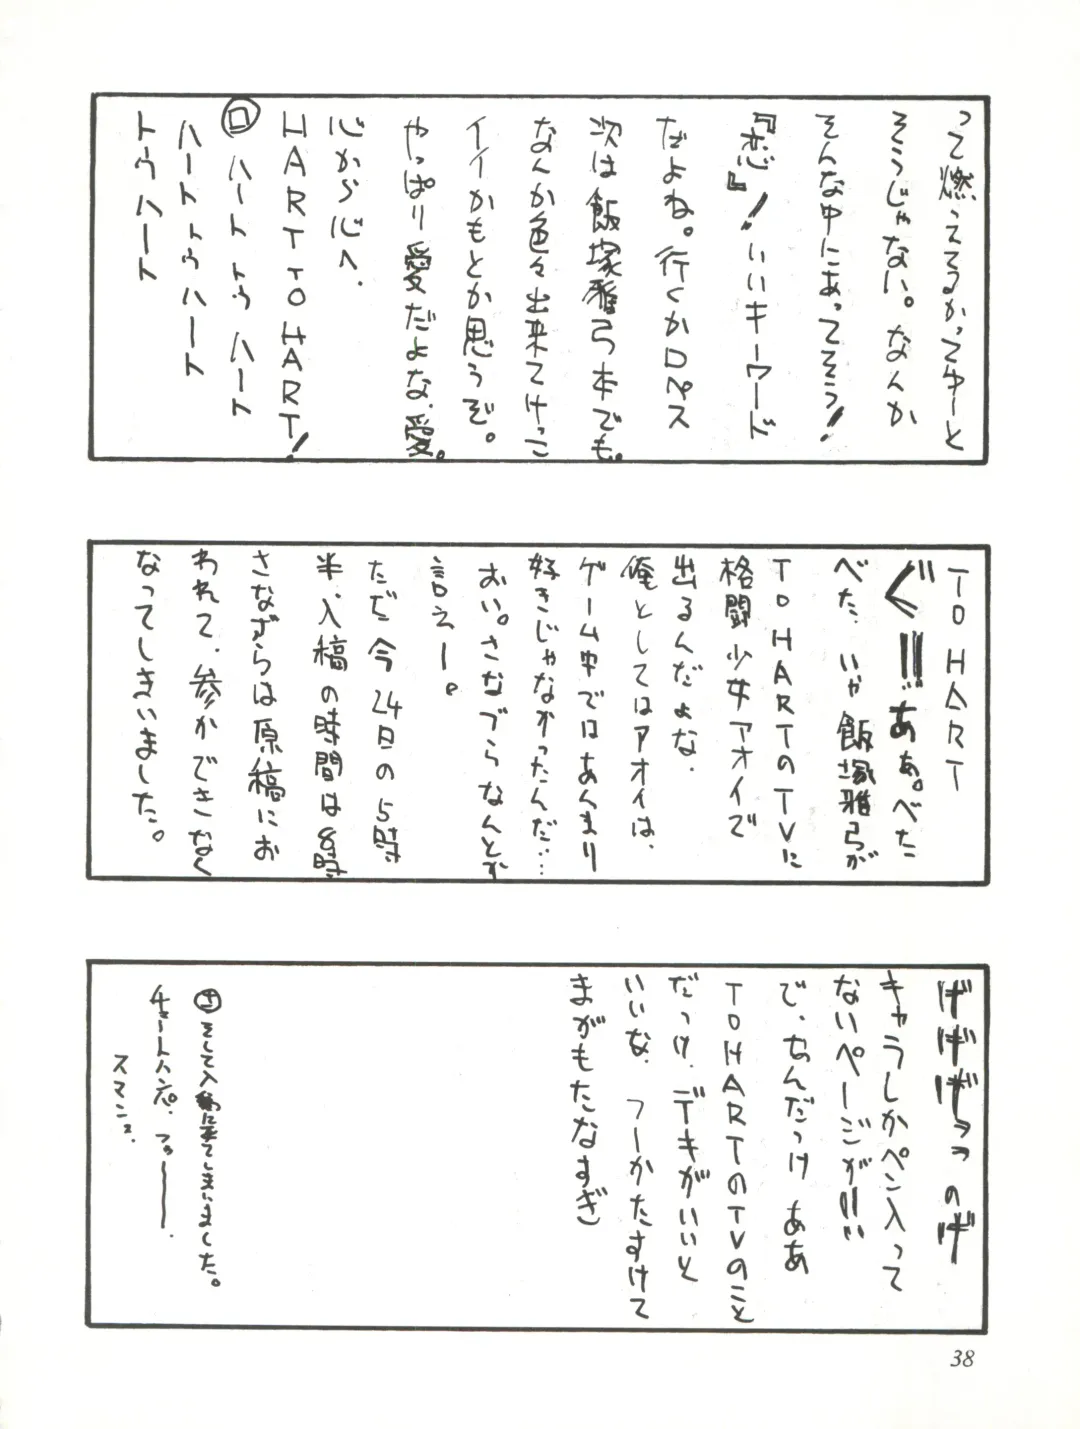 って燃えてるかってゆーと
そうじゃない。なんか
そんな中にあってそう!
『恋』!いいキーワード
だよね。行くかロペス
次は飯塚雅弓本でも。
なんか色々出来てけっこ
イイかもとか思うぞ。
やっぱり愛だよな、愛。
心から心へ、
HART TO HART!
ロ ハート トゥ ハート
ハート トゥ ハート
トゥ ハート
TO HART
ぐ!!!あぁ。べた
べた、いや飯塚雅弓が
TO HARTのTVに
格闘少女アオイで
出るんだよな、
俺としてはアオイは、
ゲーム中ではあんまり
好きじゃなかったんだ……
おい。さなづらなんとか
言えー。
ただ今24日の5時
半、入稿の時間は8時
さなづらは原稿にお
われて、参かできなく
なってしまいました。
げげげっっのげ
キャラしかペン入って
ないページが!!!
で、なんだっけ ああ
TO HARTのTVのこと
だっけ、デキがいいと
いいな、つーかたすけて
まがもたなすぎ
さ そして入稿に来てしまいました。
チュートハンパ、つぁーー、
スマンヌ、
38